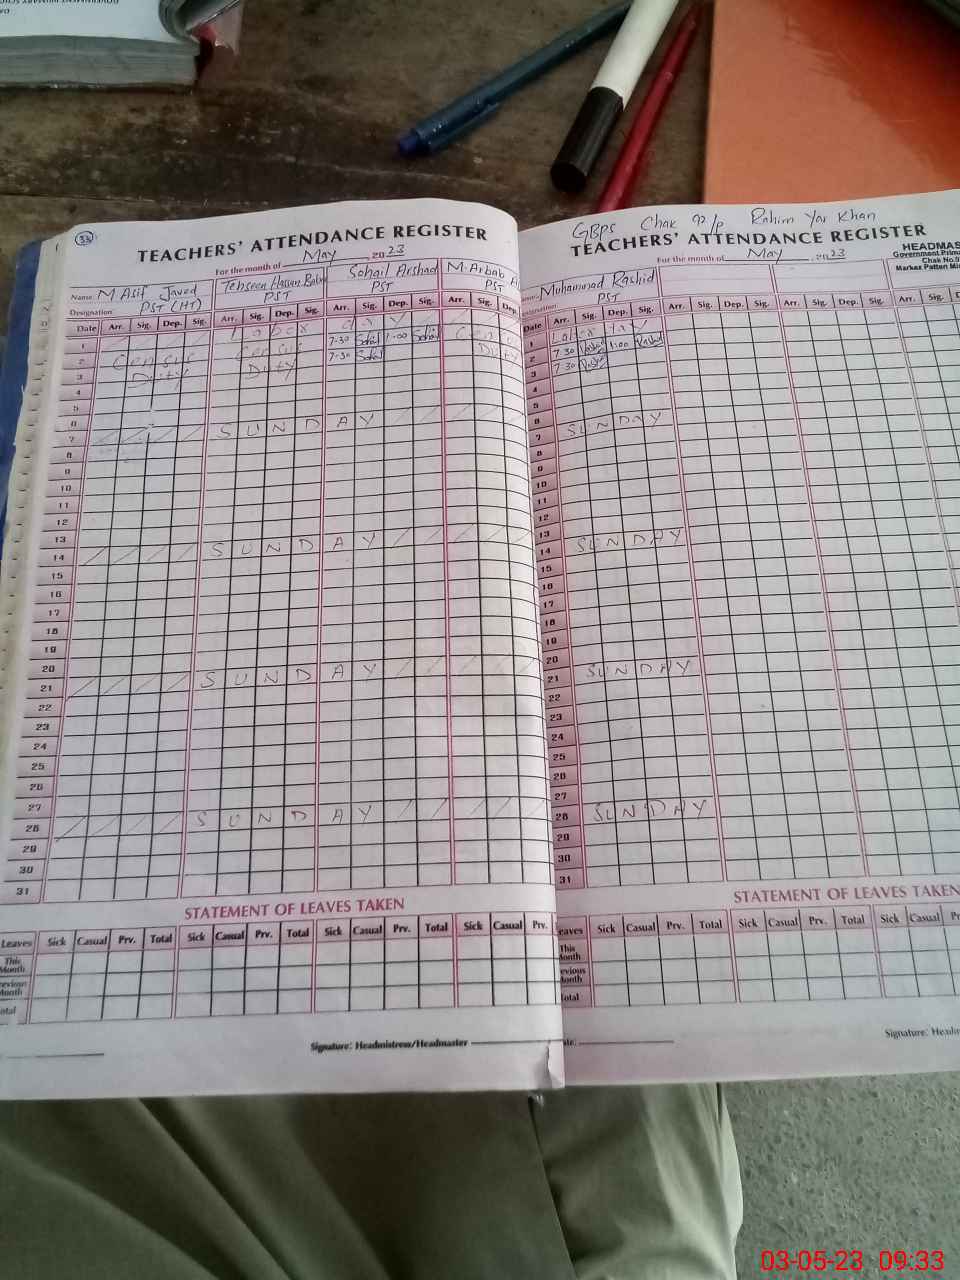 33
TEACHERS' ATTENDANCE REGISTER
For the month of May, 2023
Name: M Asif Javed
Tehseen Hassan
Sohail Arshad
M. Arbab
Designation PST (HT)
PST
PST
PST
Date Arr. Sig. Dep. Sig. Arr. Sig. Dep. Sig. Arr. Sig. Dep. Sig. Arr. Sig. Dep.
1 Labor day
2 Census Census 7-30 Sohail 1-00 Sohail Census
3 Duty Duty 7-30 Sohail Duty
4
5
6
7 SUNDAY
8
9
10
11
12
13
14 SUNDAY
15
16
17
18
19
20
21 SUNDAY
22
23
24
25
26
27
28 SUNDAY
29
30
31
STATEMENT OF LEAVES TAKEN
Leaves Sick Casual Prv. Total Sick Casual Prv. Total Sick Casual Prv. Total Sick Casual Prv.
This Month
Previous Month
Total
Signature: Headmistress/Headmaster
GBPS Chak 92/p Rahim Yar Khan
TEACHERS' ATTENDANCE REGISTER
For the month of May, 2023
HEADMAS
Government Prima
Chak No.9
Markaz Pattan Mi
Muhammad Rashid
PST
Date Arr. Sig. Dep. Sig. Arr. Sig. Dep. Sig. Arr. Sig. Dep. Sig. Arr. Sig.
1 Labor day
2 7-30 Rashid 1:00 Rashid
3 7-30 Rashid
4
5
6
7 SUNDAY
8
9
10
11
12
13
14 SUNDAY
15
16
17
18
19
20
21 SUNDAY
22
23
24
25
26
27
28 SUNDAY
29
30
31
STATEMENT OF LEAVES TAKEN
eaves Sick Casual Prv. Total Sick Casual Prv. Total Sick Casual
This Month
evious Month
Total
Signature: Headm
03-05-23 09:33